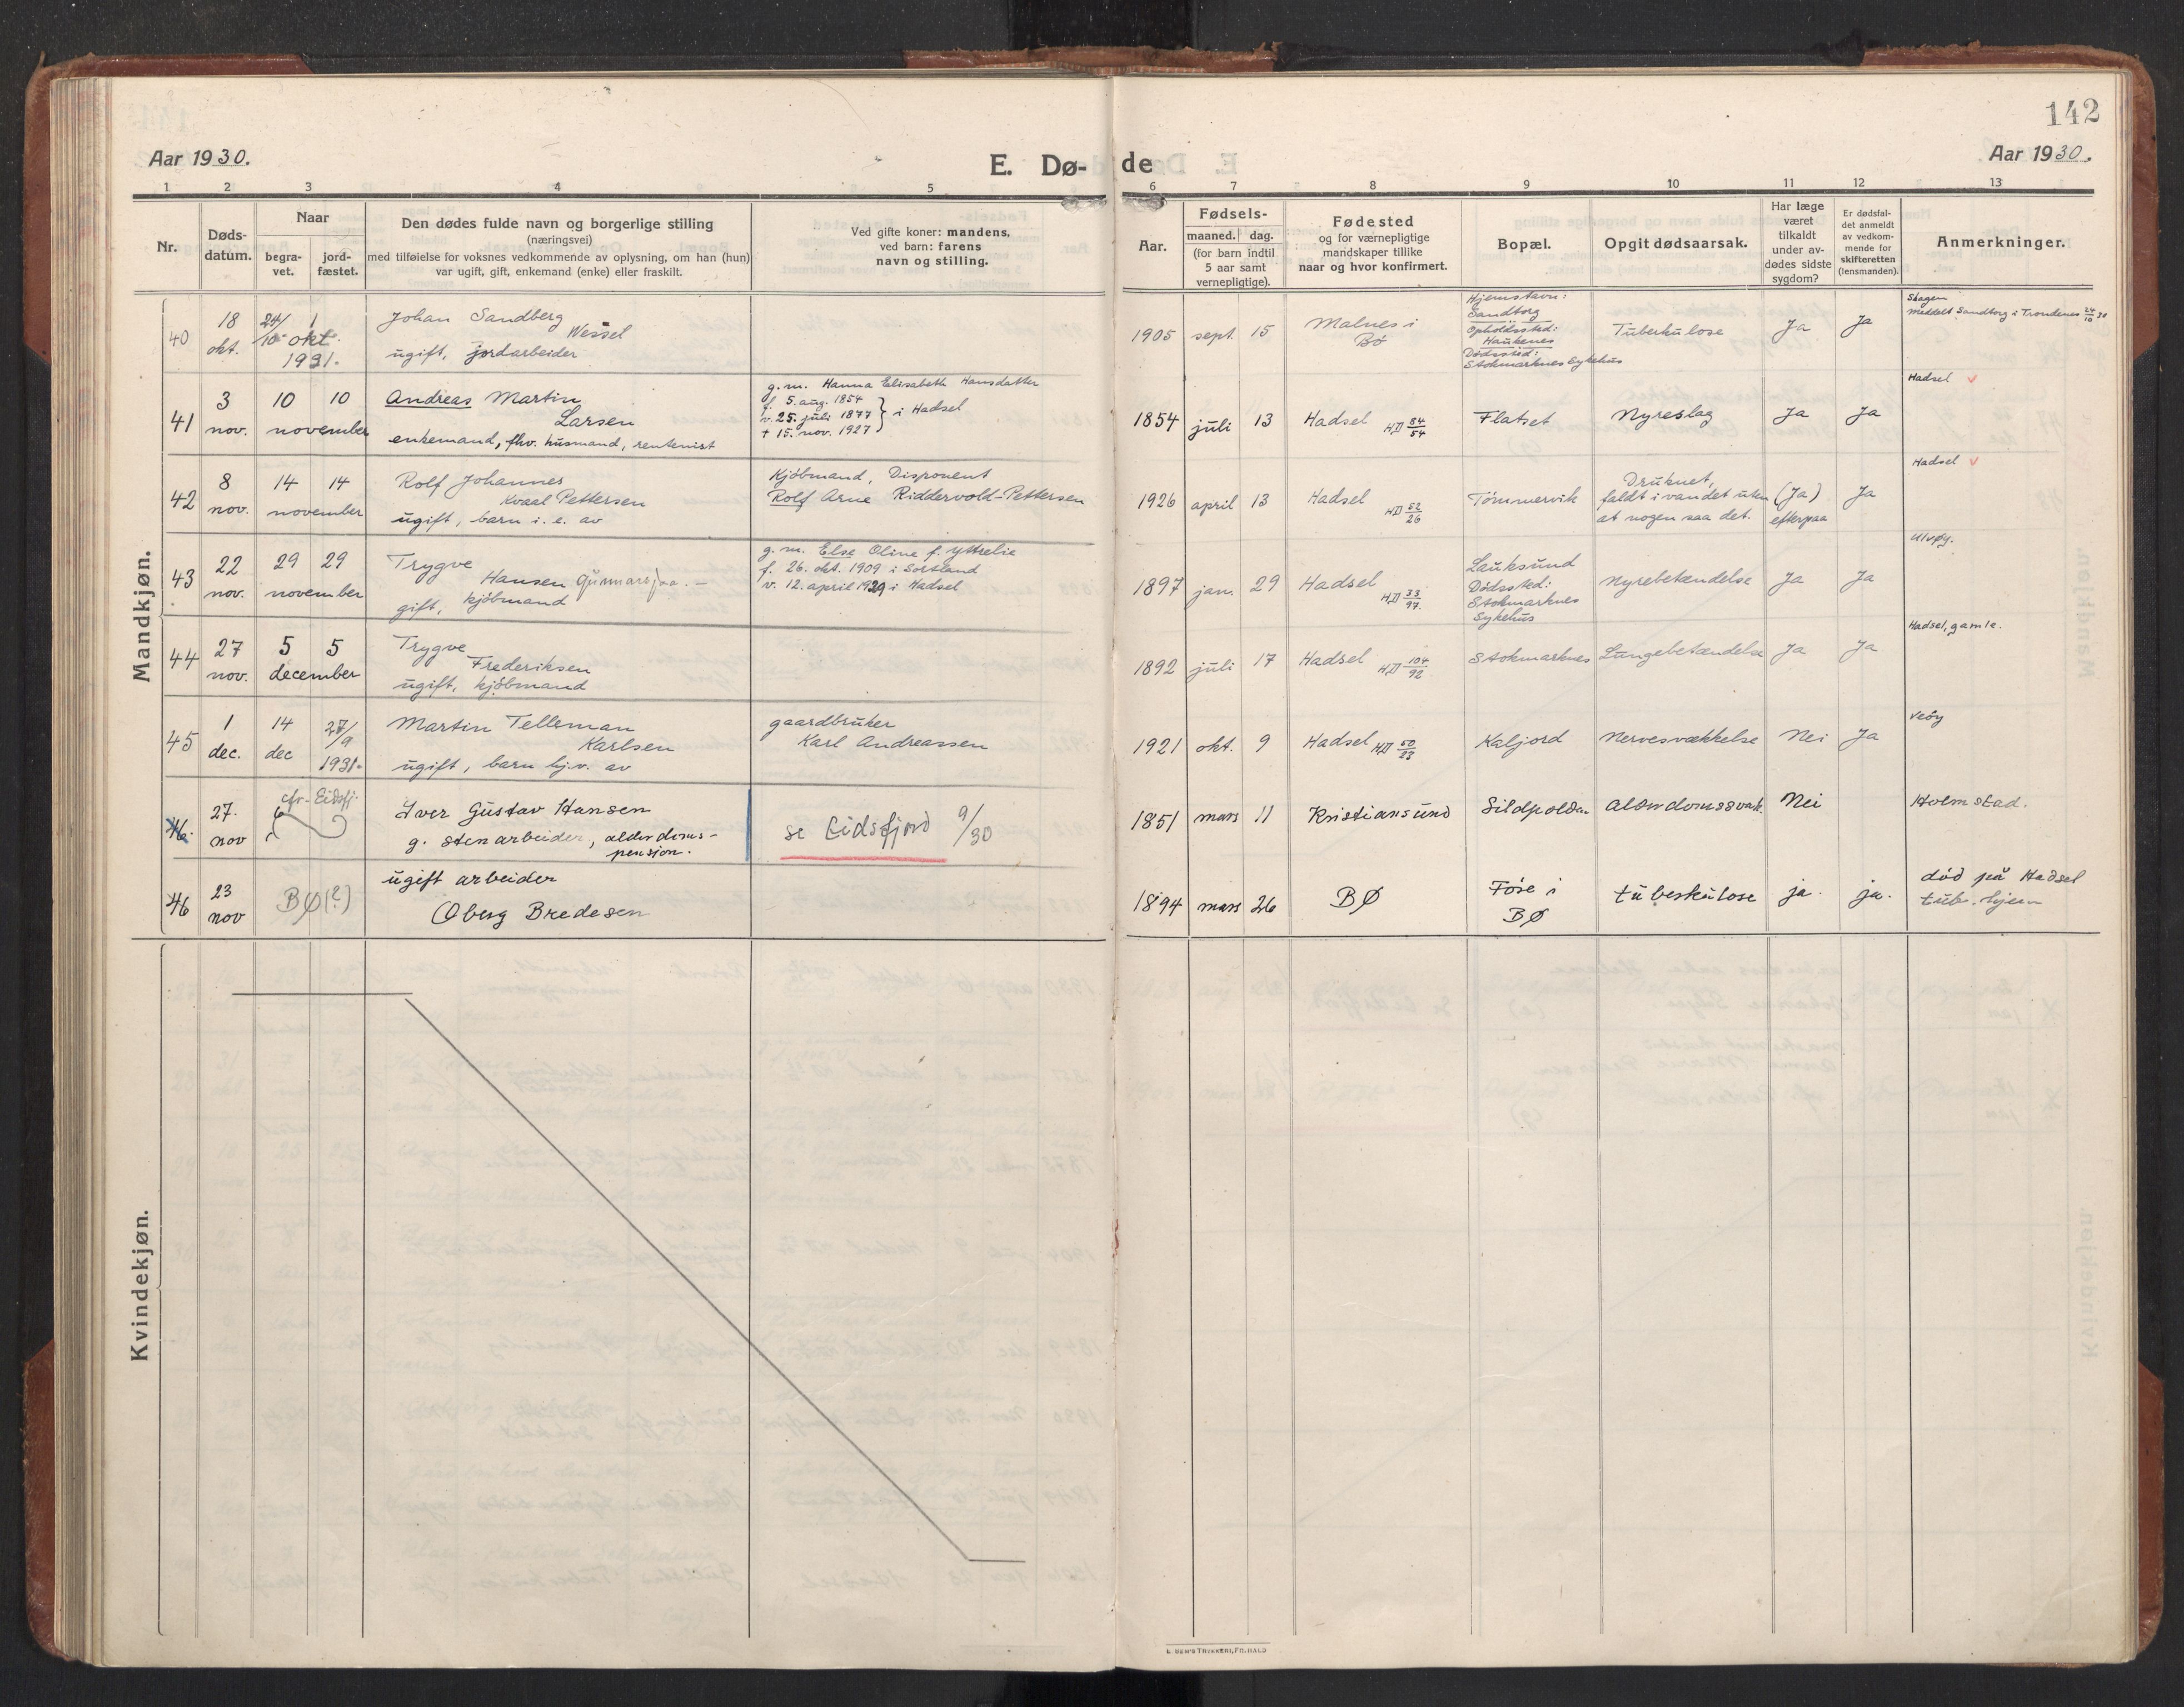 142
Aar 1930.
E. Dø-
de
Aar 1930.
1 2 3 4 5 6 7 8 9 10 11 12 13
Nr.
Døds-
datum.
Naar
begra-
vet.
jord-
fæstet.
Den dødes fulde navn og borgerlige stilling
(næringsvei)
med tilføielse for voksnes vedkommende av oplysning, om han (hun)
var ugift, gift, enkemand (enke) eller fraskilt.
Ved gifte koner: mandens,
ved barn: farens
navn og stilling.
Aar.
Fødsels-
maaned. dag.
(for barn indtil
5 aar samt
vernepligtige).
Fødested
og for værnepligtige
mandskaper tillike
naar og hvor konfirmert.
Bopæl.
Opgit dødsaarsak.
Har læge
været
tilkaldt
under av-
dødes sidste
sygdom?
Er dødsfal-
det anmeldt
av vedkom-
mende for
skifteretten
(lensmanden).
Anmerkninger.
Mandkjøn.
40
18
okt.
24/10 1 okt.
1931.
Johan Sandberg
Wessel
ugift, jordarbeider
1905 sept. 15
Malnes i
Bø
Hjemstavn:
Sandtorg
Opholdssted:
Haukenes
Dødssted:
Stokmarknes Sykehus
Tuberkulose
Ja
Ja
Skagen
meddelt Sandtorg i Trondenes 24/10 30
41
3
nov.
10 10
november
Andreas Martin
Larsen
enkemand, fhv. husmand, rentenist
g. m. Hanna Elisabeth Hansdatter
f. 5. aug. 1854
v. 25. juli 1877 } i Hadsel
† 15. nov. 1927
1854 juli 13
Hadsel HD 84/54
Flatset
Nyreslag
Ja
Ja
Hadsel v
42
8
nov.
14 14
november
Rolf Johannes
Kvaal Pettersen
ugift, barn i. e. av
Kjöbmand, Disponent
Rolf Arne Riddervold-Pettersen
1926 april 13
Hadsel HD 52/26
Tömmervik
Druknet,
faldt i vandet uten
at nogen saa det.
(Ja)
efterpaa
Ja
Hadsel v
43
22
nov.
29 29
november
Trygve
Hansen
gift, kjöbmand
g. m. Else Oline f. Yttrelie
f. 26. okt. 1909 i Sortland
v. 12. april 1929 i Hadsel
1897 jan. 29
Hadsel HD 33/97.
Lauksund
Dödssted:
Stokmarknes
Sykehus
Nyrebetændelse
Ja
Ja
Ulvøy.
44
27
nov.
5 5
december
Trygve
Frederiksen
ugift, kjöbmand
1892 juli 17
Hadsel HD 104/92
Stokmarknes
Lungebetændelse
Ja
Ja
Hadsel, gamle.
45
1
dec.
14
dec
27/9
1931.
Martin Telleman
Karlsen
ugift, barn hj.v. av
gaardbruker
Karl Andreassen
1921 okt. 9
Hadsel HD 50/23
Kaljord
Nervesvækkelse
Nei
Ja
Vesøy
46.
27.
nov
cfr. Eidsfj.
Iver Gustav Hansen
g. stenarbeider, alderdoms-
pensjon.
se Eidsfjord 9/30
1851 mars 11
Kristiansund
Sildpolden
alderdomssvak.
Nei
Holmstad.
46
23
nov
BØ(?)
ugift arbeider
Oberg Bredesen
1894 mars 26
BØ
Föse i
BØ
tuberkulose
ja.
ja.
död på Hadsel
tub. hjem
Kvindekjøn.